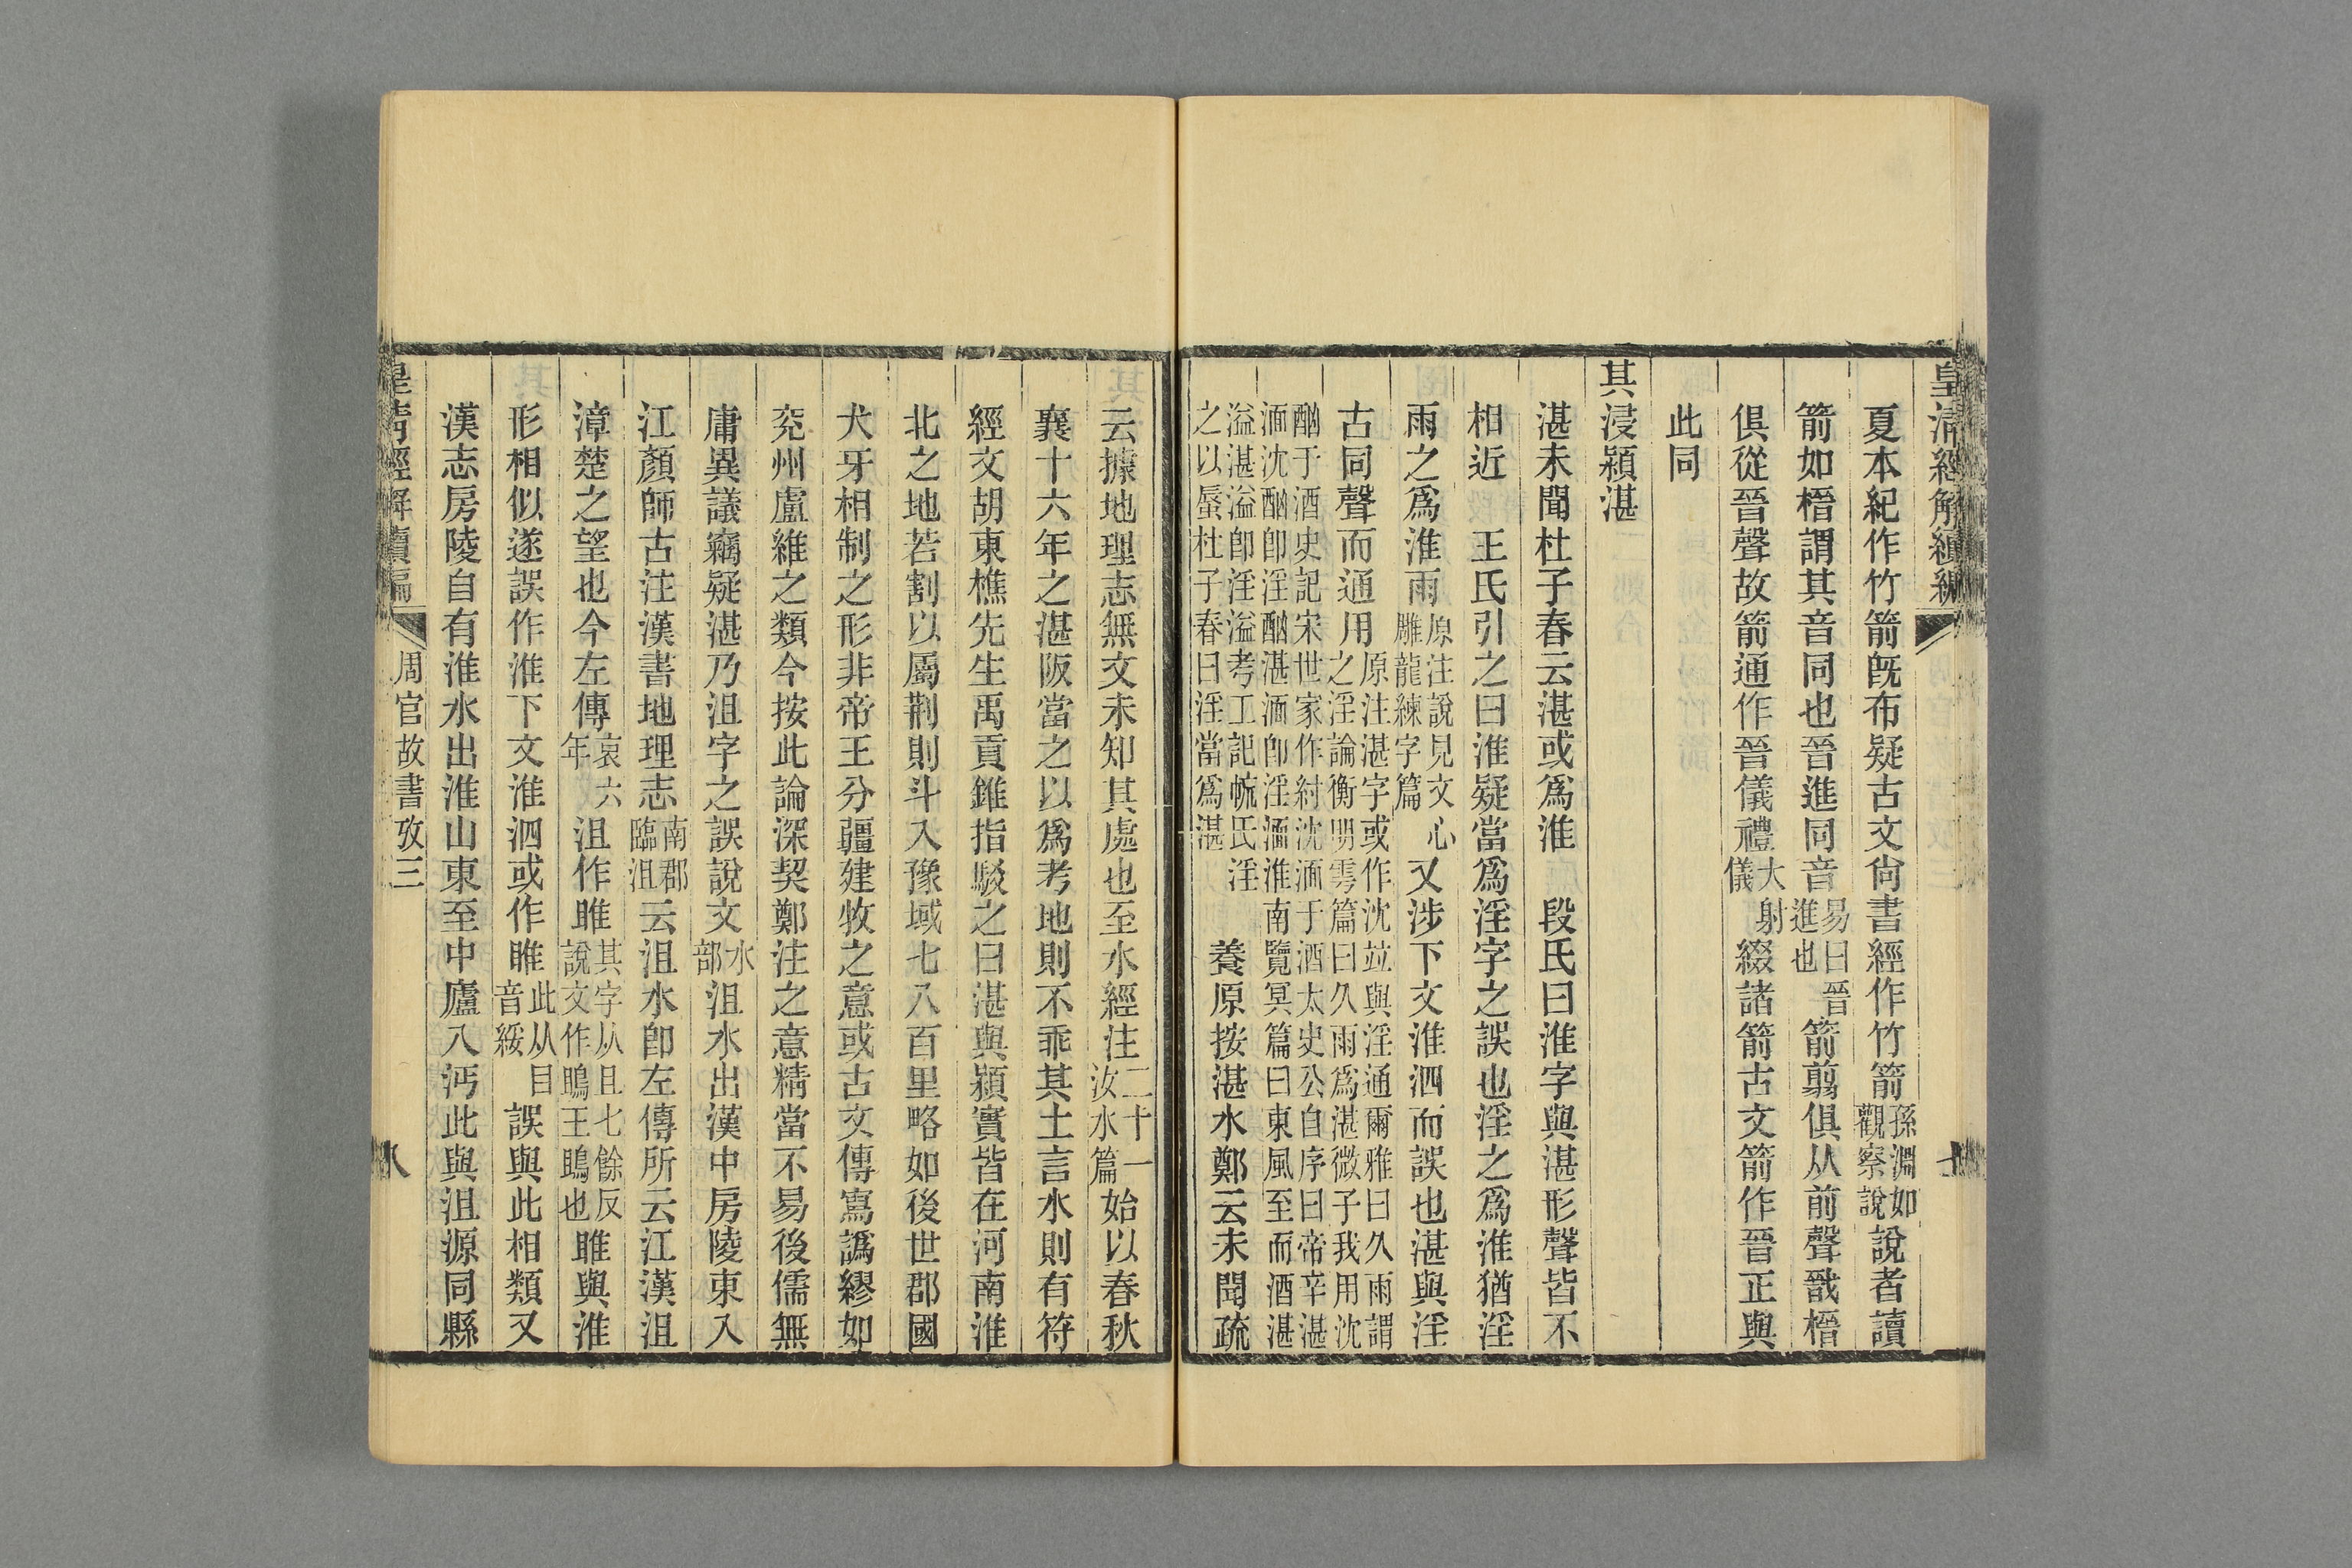 皇清經解續編
夏本紀作竹箭旣布疑古文尙書經作竹箭孫淵如觀察說說者讀
箭如榗謂其音同也晉進同音易曰晉進也箭翦俱从前聲戬榗
俱從晉聲故箭通作晉儀禮大射儀綴諸箭古文箭作晉正與
此同
其浸潁湛
湛未聞杜子春云湛或爲淮　段氏曰淮字與湛形聲皆不
相近　王氏引之曰淮疑當爲淫字之誤也淫之爲淮猶淫
雨之爲淮雨原注說見文心雕龍練字篇又涉下文淮泗而誤也湛與淫
古同聲而通用原注湛字或作沈竝與淫通爾雅曰久雨謂之淫論衡明雩篇曰久雨爲湛微子我用沈
酗于酒史記宋世家作紂沈湎于酒太史公自序曰帝辛湛湎沈酗卽淫酗湛湎卽淫湎淮南覽冥篇曰東風至而酒湛
溢湛溢卽淫溢考工記㡛氏淫之以蜃杜子春曰淫當爲湛　養原按湛水鄭云未聞疏
云據地理志無文未知其處也至水經注二十一汝水篇始以春秋
襄十六年之湛阪當之以爲考地則不乖其土言水則有符
經文胡東樵先生禹貢錐指駁之曰湛與潁實皆在河南淮
北之地若割以屬荆則斗入豫域七八百里略如後世郡國
犬牙相制之形非帝王分疆建牧之意或古文傳寫譌繆如
兖州盧維之類今按此論深契鄭注之意精當不易後儒無
庸異議竊疑湛乃沮字之誤說文水部沮水出漢中房陵東入
江顏師古注漢書地理志南郡臨沮云沮水卽左傳所云江漢沮
漳楚之望也今左傳哀六年沮作雎其字从且七餘反說文作鴡王鴡也雎與淮
形相似遂誤作淮下文淮泗或作睢此从目音綏誤與此相類又
漢志房陵自有淮水出淮山東至中廬入沔此與沮源同縣
皇清經解續編　周官故書攷三　八